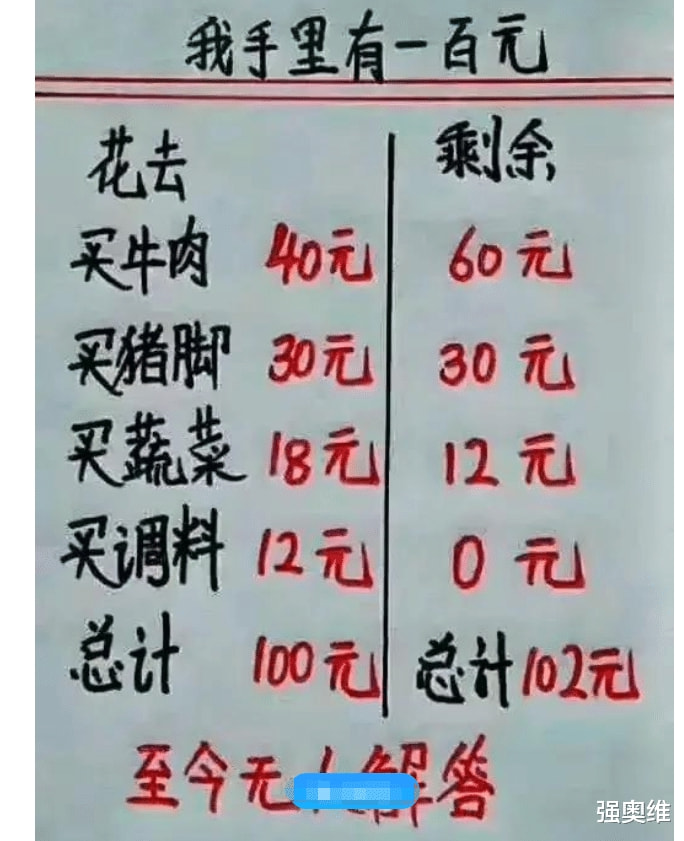 我手里有一百元
花去 剩余
买牛肉 40元 60元
买猪脚 30元 30元
买蔬菜 18元 12元
买调料 12元 0元
总计 100元 总计102元
至今无解答
强奥维